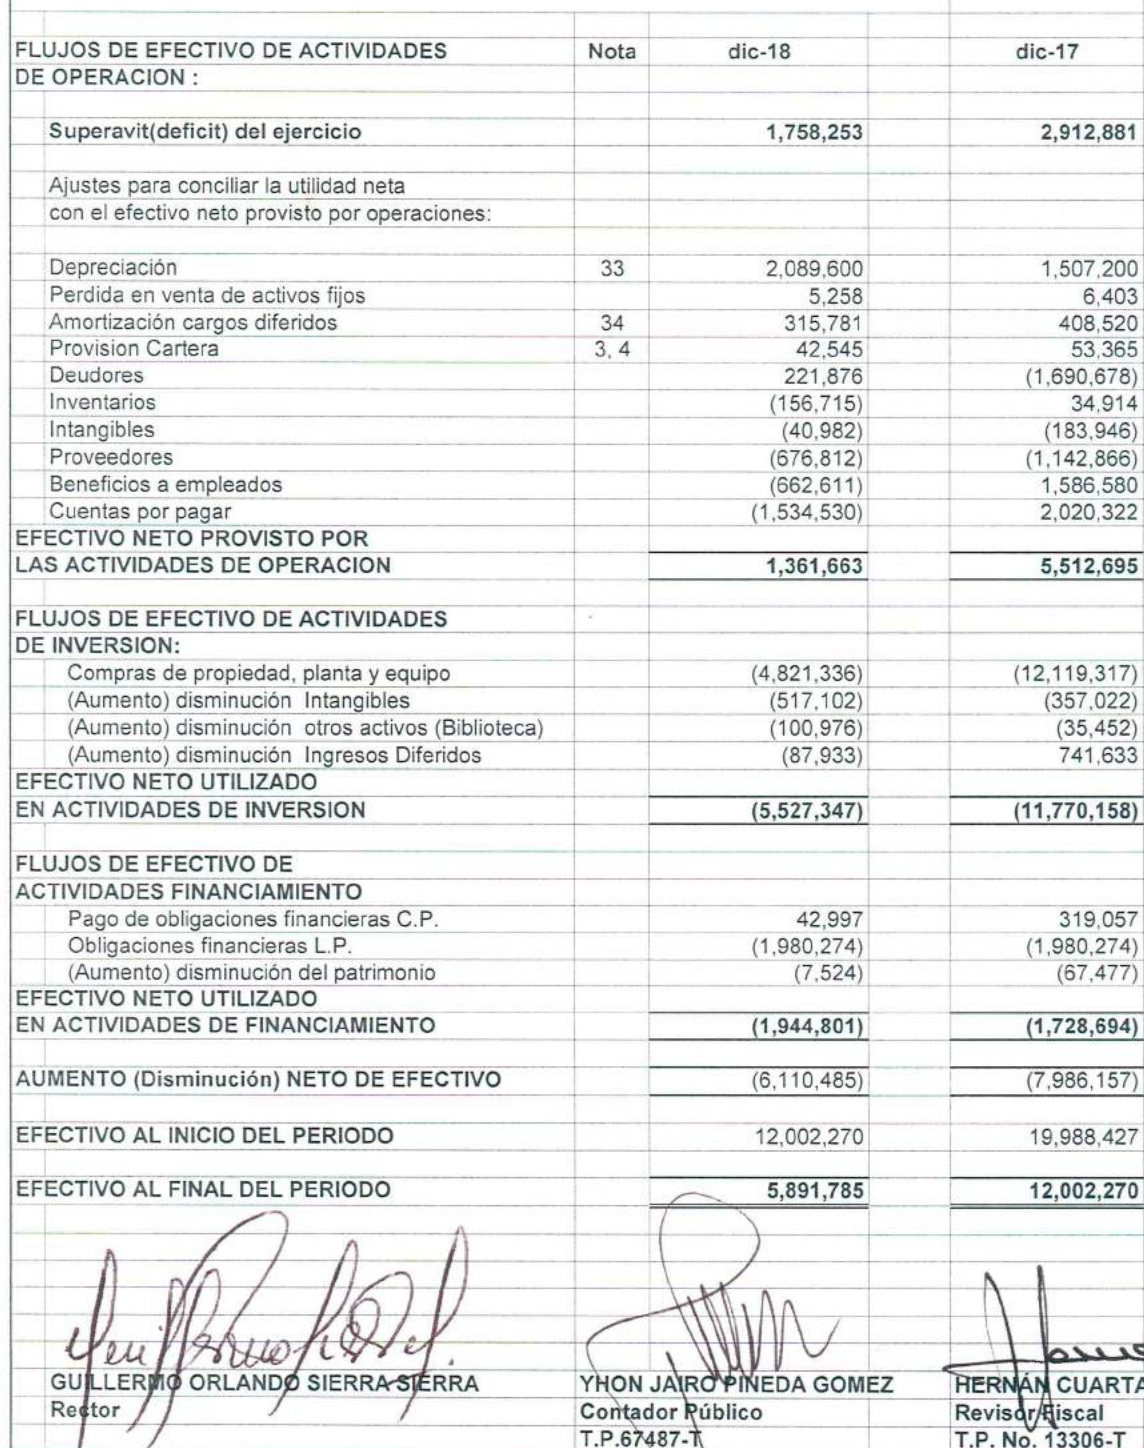 FLUJOS DE EFECTIVO DE ACTIVIDADES Nota dic-18 dic-17
DE OPERACION :
Superavit(deficit) del ejercicio 1,758,253 2,912,881
Ajustes para conciliar la utilidad neta
con el efectivo neto provisto por operaciones:
Depreciación 33 2,089,600 1,507,200
Perdida en venta de activos fijos 5,258 6,403
Amortización cargos diferidos 34 315,781 408,520
Provision Cartera 3, 4 42,545 53,365
Deudores 221,876 (1,690,678)
Inventarios (156,715) 34,914
Intangibles (40,982) (183,946)
Proveedores (676,812) (1,142,866)
Beneficios a empleados (662,611) 1,586,580
Cuentas por pagar (1,534,530) 2,020,322
EFECTIVO NETO PROVISTO POR
LAS ACTIVIDADES DE OPERACION 1,361,663 5,512,695
FLUJOS DE EFECTIVO DE ACTIVIDADES
DE INVERSION:
Compras de propiedad, planta y equipo (4,821,336) (12,119,317)
(Aumento) disminución Intangibles (517,102) (357,022)
(Aumento) disminución otros activos (Biblioteca) (100,976) (35,452)
(Aumento) disminución Ingresos Diferidos (87,933) 741,633
EFECTIVO NETO UTILIZADO
EN ACTIVIDADES DE INVERSION (5,527,347) (11,770,158)
FLUJOS DE EFECTIVO DE
ACTIVIDADES FINANCIAMIENTO
Pago de obligaciones financieras C.P. 42,997 319,057
Obligaciones financieras L.P. (1,980,274) (1,980,274)
(Aumento) disminución del patrimonio (7,524) (67,477)
EFECTIVO NETO UTILIZADO
EN ACTIVIDADES DE FINANCIAMIENTO (1,944,801) (1,728,694)
AUMENTO (Disminución) NETO DE EFECTIVO (6,110,485) (7,986,157)
EFECTIVO AL INICIO DEL PERIODO 12,002,270 19,988,427
EFECTIVO AL FINAL DEL PERIODO 5,891,785 12,002,270
GUILLERMO ORLANDO SIERRA SIERRA YHON JAIRO PINEDA GOMEZ HERNÁN CUARTA
Rector Contador Público Revisor Fiscal
T.P.67487-T T.P. No. 13306-T